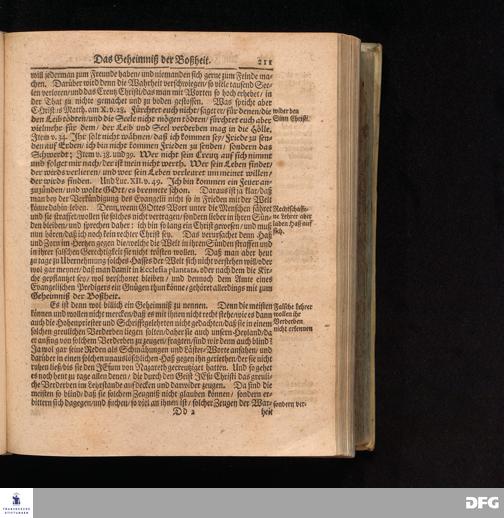 Das Geheimniß der Boßheit. 211
will jederman zum Freunde haben/ und niemanden sich gerne zum Feinde ma-
chen. Darüber wird denn die Wahrheit verschwiegen/ so viele tausend See-
len verloren/ und das Creutz Christi/ das man mit Worten so hoch erhebet/ in
der That zu nichte gemachet und zu boden gestossen. Was spricht aber
Christus Matth. am X. v. 28. Fürchtet euch nicht/ saget er/ für denen/ die
den Leib tödten/ und die Seele nicht mögen tödten/ fürchtet euch aber
vielmehr für dem/ der Leib und Seel verderben mag in die Hölle.
Item v. 34. Ihr solt nicht wähnen/ daß ich kommen sey/ Friede zu sen-
den auf Erden/ ich bin nicht kommen Frieden zu senden/ sondern das
Schwerdt; Item v. 38. und 39. Wer nicht sein Creutz auf sich nimmt
und folget mir nach/ der ist mein nicht werth. Wer sein Leben findet/
der wirds verlieren/ und wer sein Leben verleuret um meinet willen/
der wirds finden. Und Luc. XII. v. 49. Ich bin kommen ein Feuer an-
zuzünden/ und wolte GOtt/ es brennete schon. Daraus ist ja klar/ daß
man bey der Verkündigung des Evangelii nicht so in Frieden mit der Welt
könne dahin leben. Denn/ wenn GOttes Wort unter die Menschen fähret
und sie straffet/ wollen sie solches nicht vertragen/ sondern lieber in ihren Sün-
den bleiben/ und sprechen daher: ich bin so lang ein Christ gewesen/ und muß
nun hören/ daß ich noch kein rechter Christ sey. Das verursachet denn Haß
und Zorn im Hertzen gegen die/ welche die Welt in ihren Sünden straffen und
in ihrer falschen Gerechtigkeit sie nicht trösten wollen. Daß man aber heut
zu tage zu Ubernehmung solches Hasses der Welt sich nicht verstehen will/ oder
wol gar meynet/ daß man damit in Ecclesia plantata, oder nach dem die Kir-
che gepflantzet sey/ wol verschonet bleiben/ und dennoch dem Amte eines
Evangelischen Predigers ein Gnügen thun könne/ gehöret allerdings mit zum
Geheimniß der Boßheit.
Es ist denn wol billich ein Geheimniß zu nennen. Denn die meisten
können und wollen nicht mercken/ daß es mit ihnen nicht recht stehe/ wie es dann
auch die Hohenpriester und Schrifftgelehrten nicht gedachten/ daß sie in einem
solchen greulichen Verderben liegen solten/ daher sie auch unsern Heyland/ da
er anfing von solchem Verderben zu zeugen/ fragten/ sind wir denn auch blind?
Ja wol gar seine Reden als Schmähungen und Läster-Worte ansahen/ und
darüber in einen solchen unauslöschlichen Haß gegen ihn geriethen/ der sie nicht
ruhen ließ/ bis sie den JEsum von Nazareth gecreutziget hatten. Und so gehet
es noch heut zu tage allen denen/ die durch den Geist JEsu Christi das greuli-
che Verderben im Lehrstande aufdecken und darwider zeugen. Da sind die
meisten so blind/ daß sie solchem Zeugniß nicht glauben können/ sondern er-
bittern sich dagegen/ und suchen/ so viel an ihnen ist/ solcher Zeugen der War-
Dd 2 heit
wider den
Sinn Christi.
Rechtschaffe-
ne Lehrer aber
laden Haß auf
sich.
Falsche Lehrer
wollen ihr
Verderben
nicht erkennen
sondern ver-
FRANCKESCHE
STIFTUNGEN
DFG